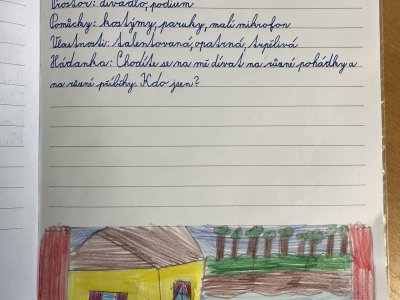 Prostor: divadlo, podium
Pomůcky: kostýmy, paruky, malí mikrofon
Vlastnosti: talentovaná, opatrná, trpělivá
Hádanka: Chodíte se na mě dívat na různé pohádky a
na různé příběhy. Kdo jsem?